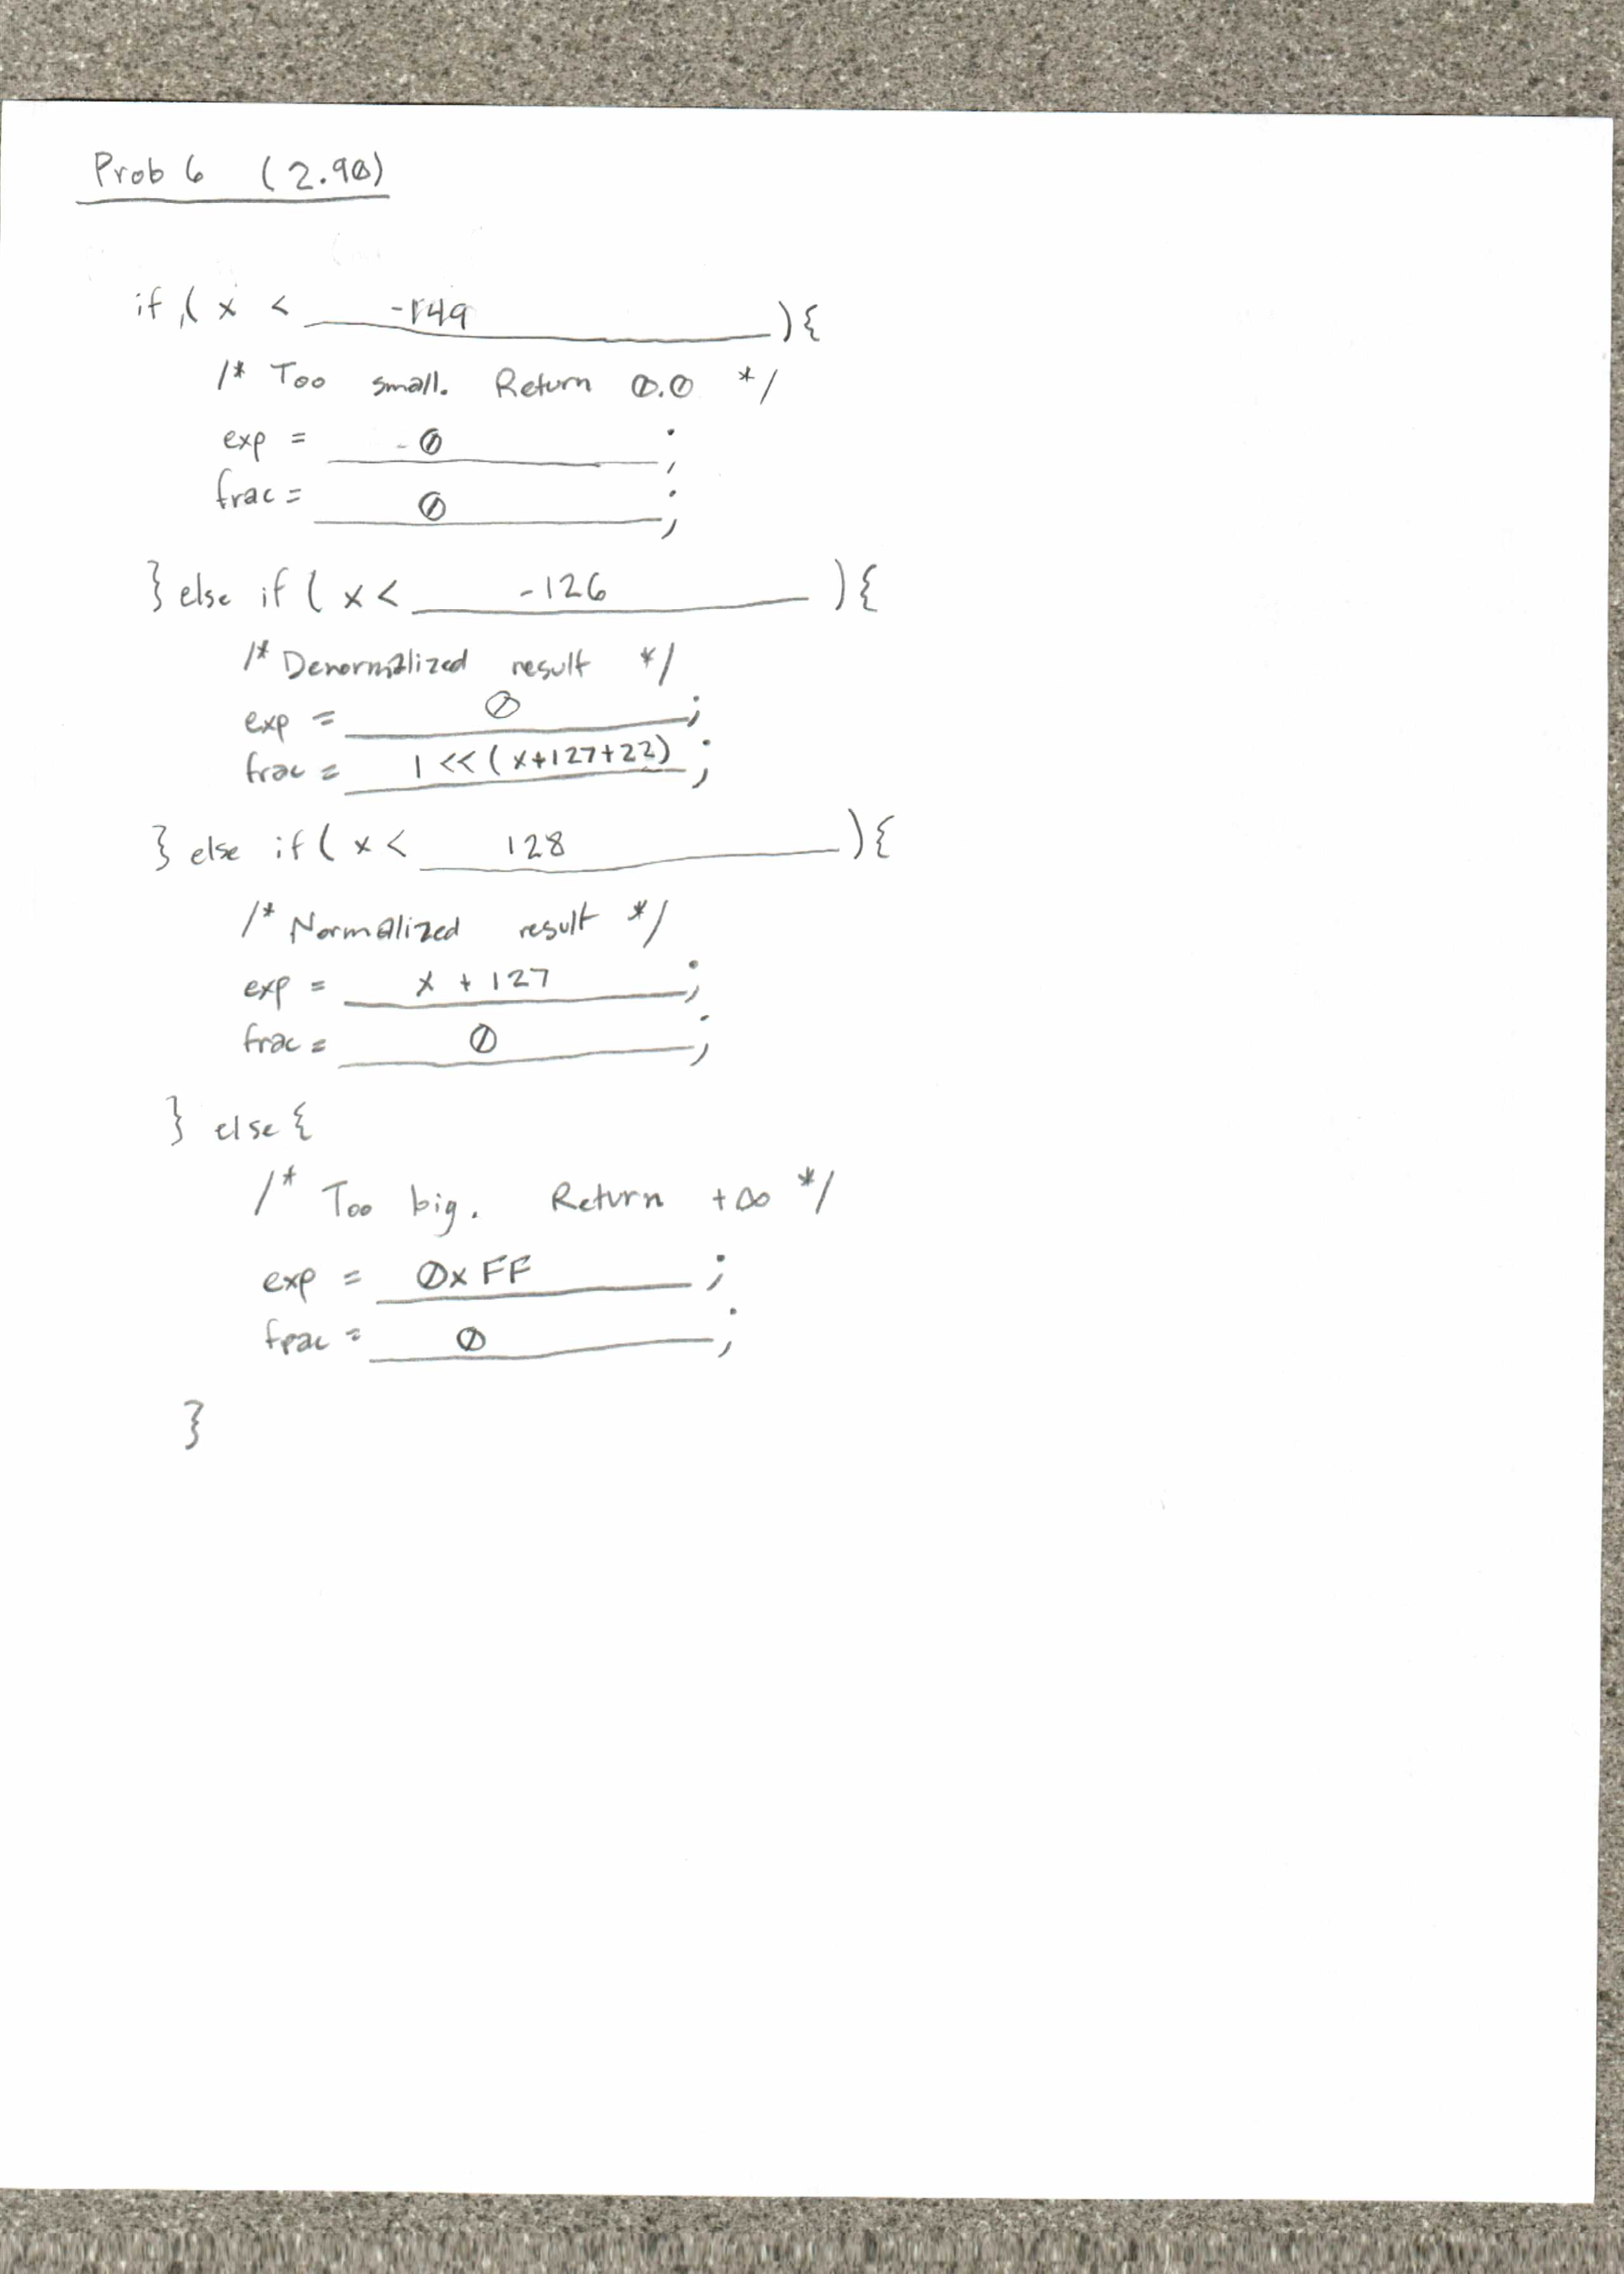 Prob 6 (2.90)
if ( x < -149 ) {
/* Too small. Return 0.0 */
exp = 0 ;
frac = 0 ;
} else if ( x < -126 ) {
/* Denormalized result */
exp = 0 ;
frac = 1 << (x+127+22) ;
} else if ( x < 128 ) {
/* Normalized result */
exp = x + 127 ;
frac = 0 ;
} else {
/* Too big. Return +∞ */
exp = 0xFF ;
frac = 0 ;
}